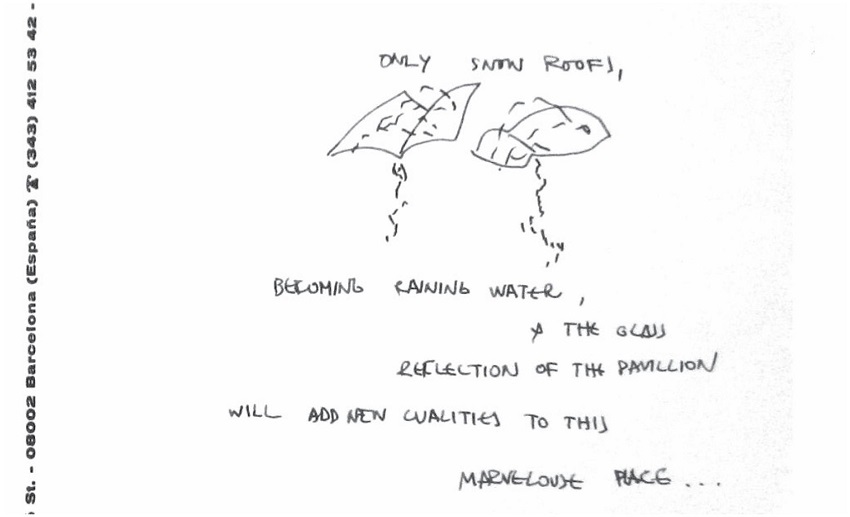 St. - 08002 Barcelona (España) ☎ (343) 412 53 42 -
ONLY SNOW ROOFS,
BECOMING RAINING WATER,
& THE GLASS
REFLECTION OF THE PAVILLION
WILL ADD NEW CUALITIES TO THIS
MARVELOUSE PLACE...